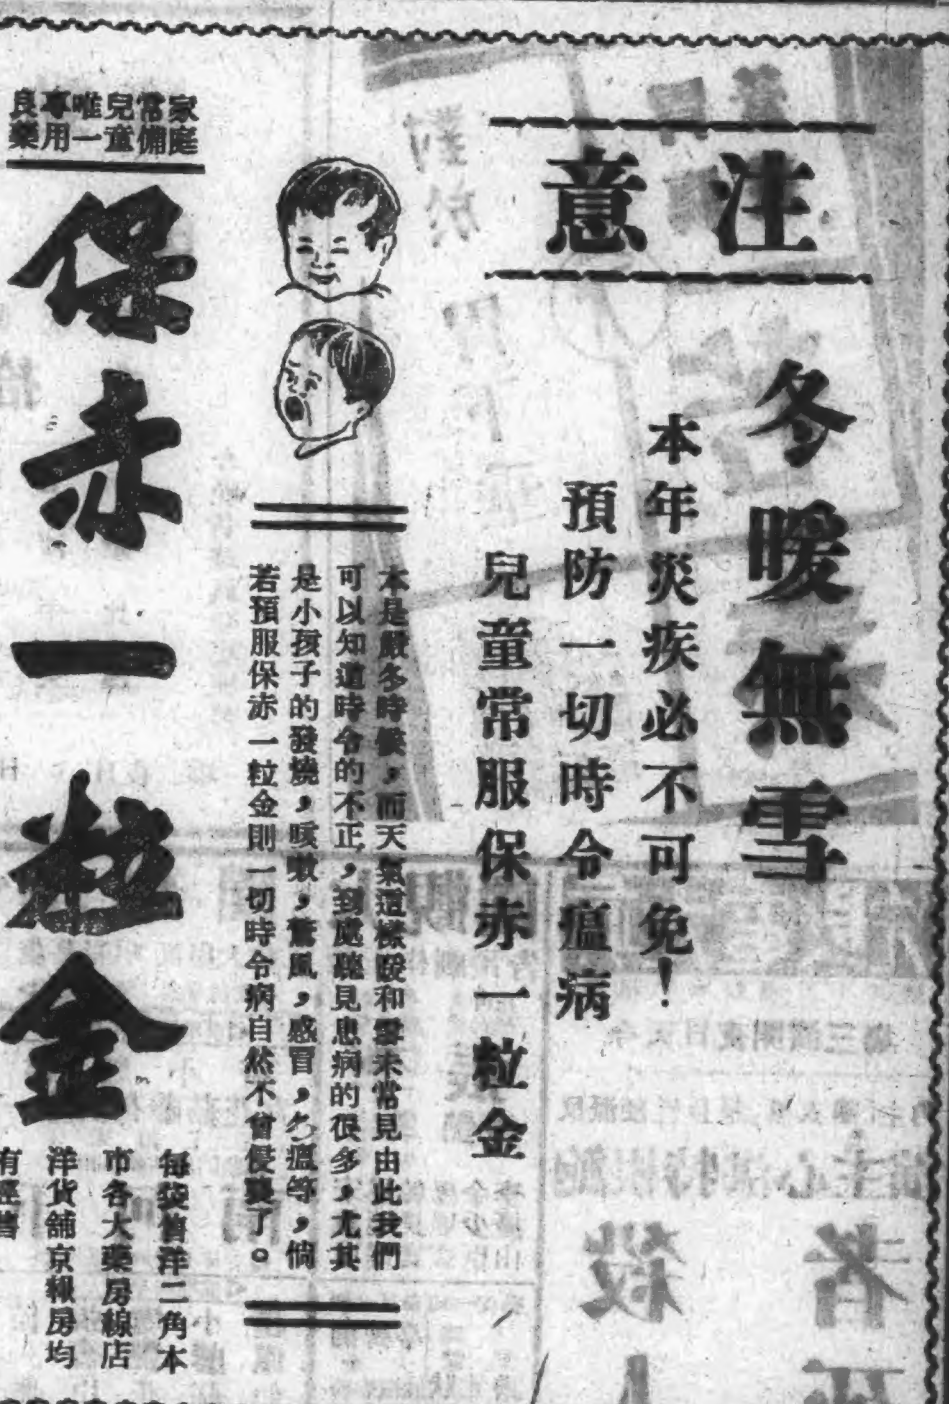 注意
冬暖無雪
本年災疾必不可免！
預防一切時令瘟病
兒童常服保赤一粒金
本是嚴冬時候，而天氣這樣暖和雪未常見由此我們
可以知道時令的不正，到處聽見患病的很多，尤其
是小孩子的發燒，咳嗽，驚風，感冒，冬瘟等，倘
若預服保赤一粒金則一切時令病自然不會侵襲了。
家庭常備兒童唯一專用良藥
保赤一粒金
每袋售洋二角本
市各大藥房線店
洋貨舖京報房均
有經售